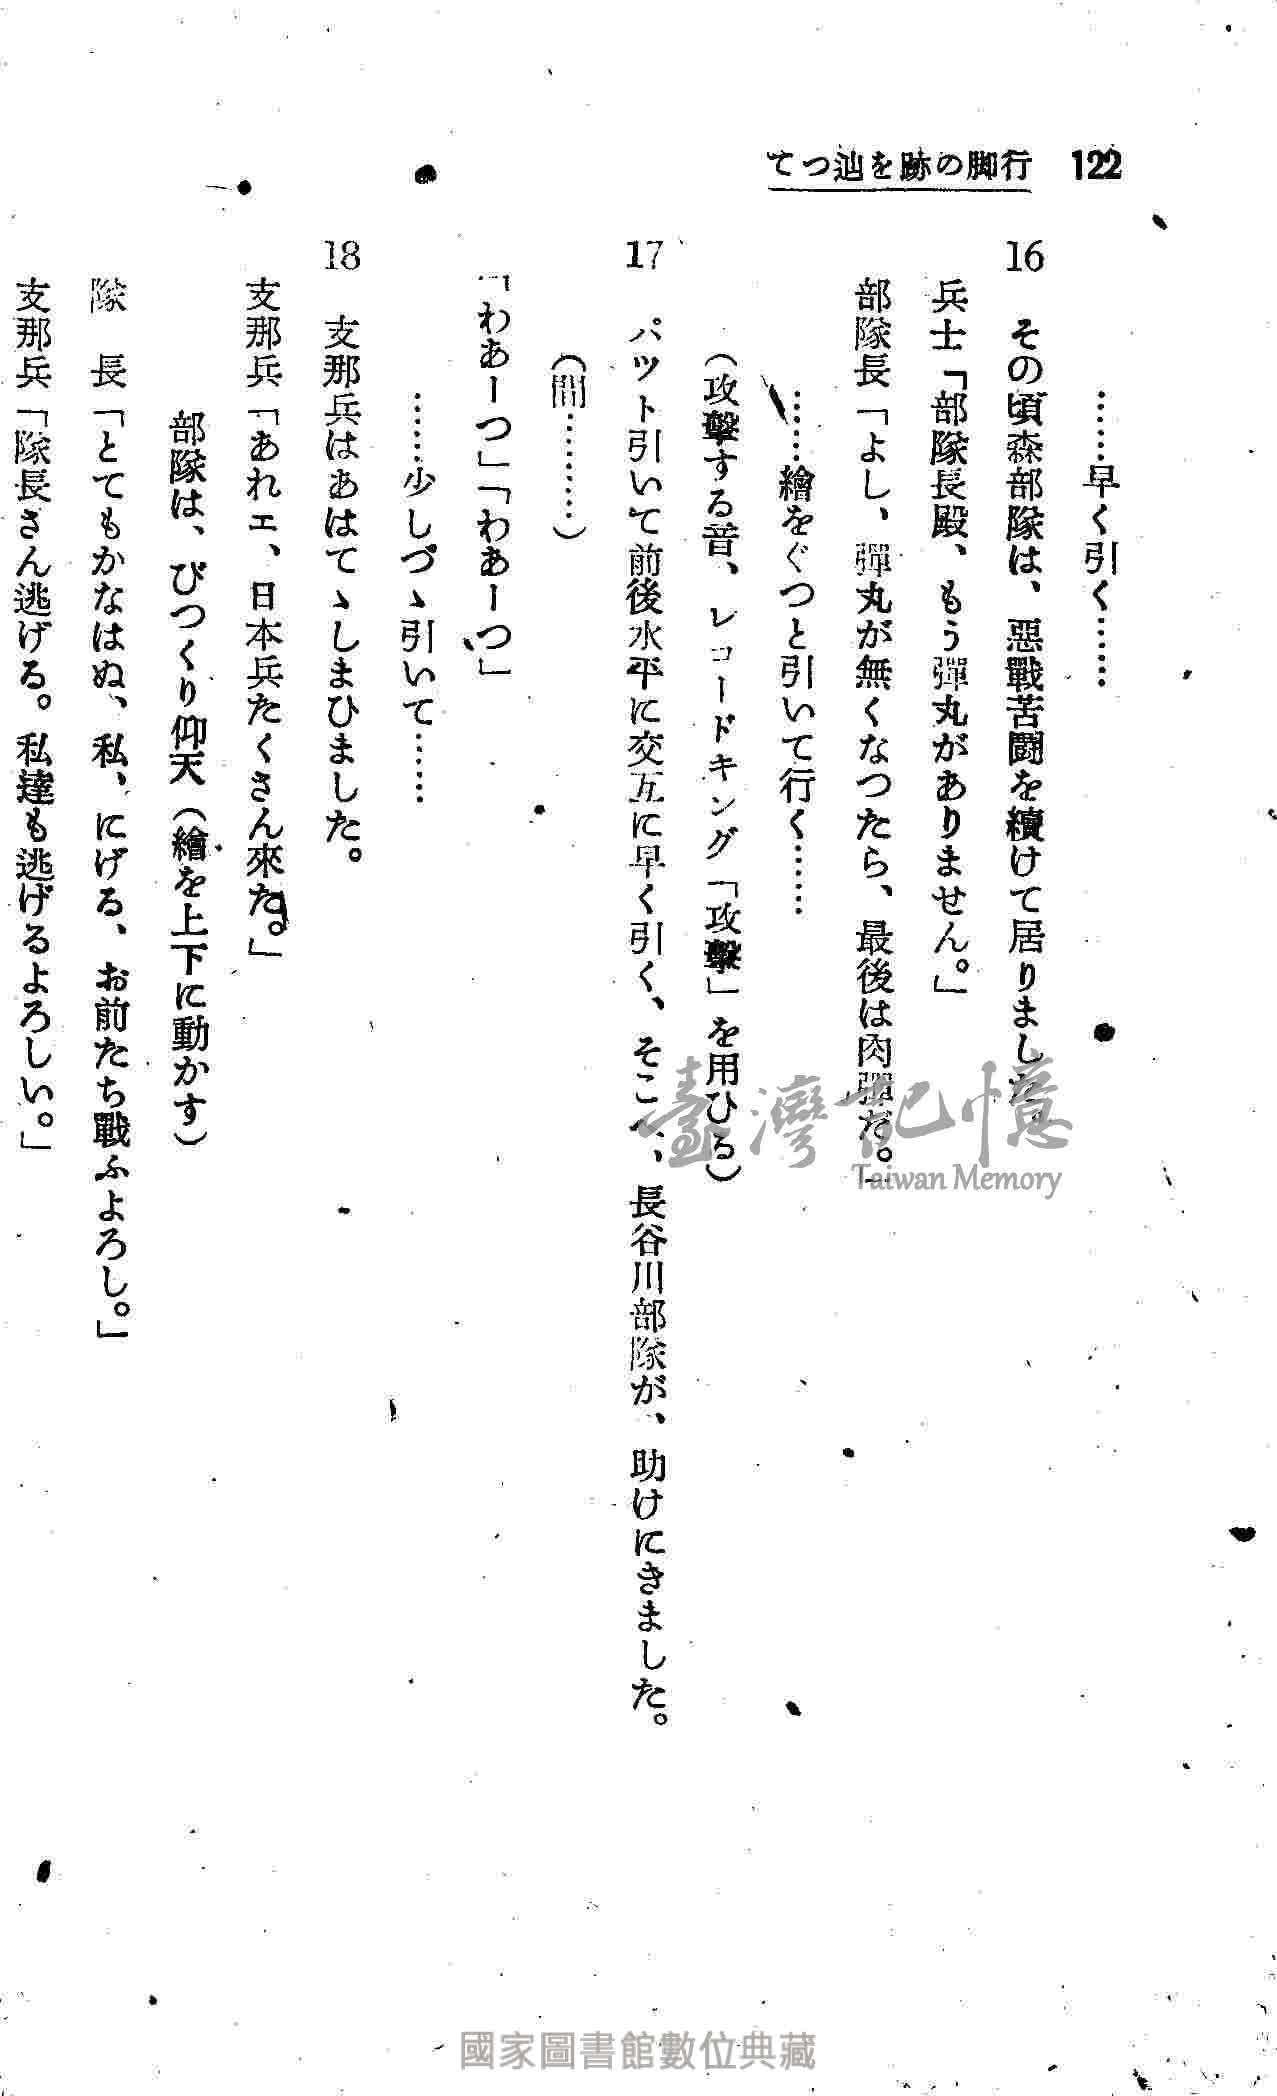 122 行脚の跡を辿つて
……早く引く……
16 その頃森部隊は、惡戰苦鬪を續けて居りました。
兵士「部隊長殿、もう彈丸がありません。」
部隊長「よし、彈丸が無くなつたら、最後は肉彈だ。」
……繪をぐつと引いて行く……
(攻擊する音、レコードキング「攻擊」を用ひる)
17 パツト引いて前後水平に交互に早く引く、そこへ、長谷川部隊が、助けにきました。
(間………)
「わあーつ」「わあーつ」
……少しづゝ引いて……
18 支那兵はあはてゝしまひました。
支那兵「あれエ、日本兵たくさん來た。」
部隊は、びつくり仰天(繪を上下に動かす)
隊 長「とてもかなはぬ、私、にげる、お前たち戰ふよろし。」
支那兵「隊長さん逃げる。私達も逃げるよろしい。」
臺灣記憶
Taiwan Memory
國家圖書館數位典藏